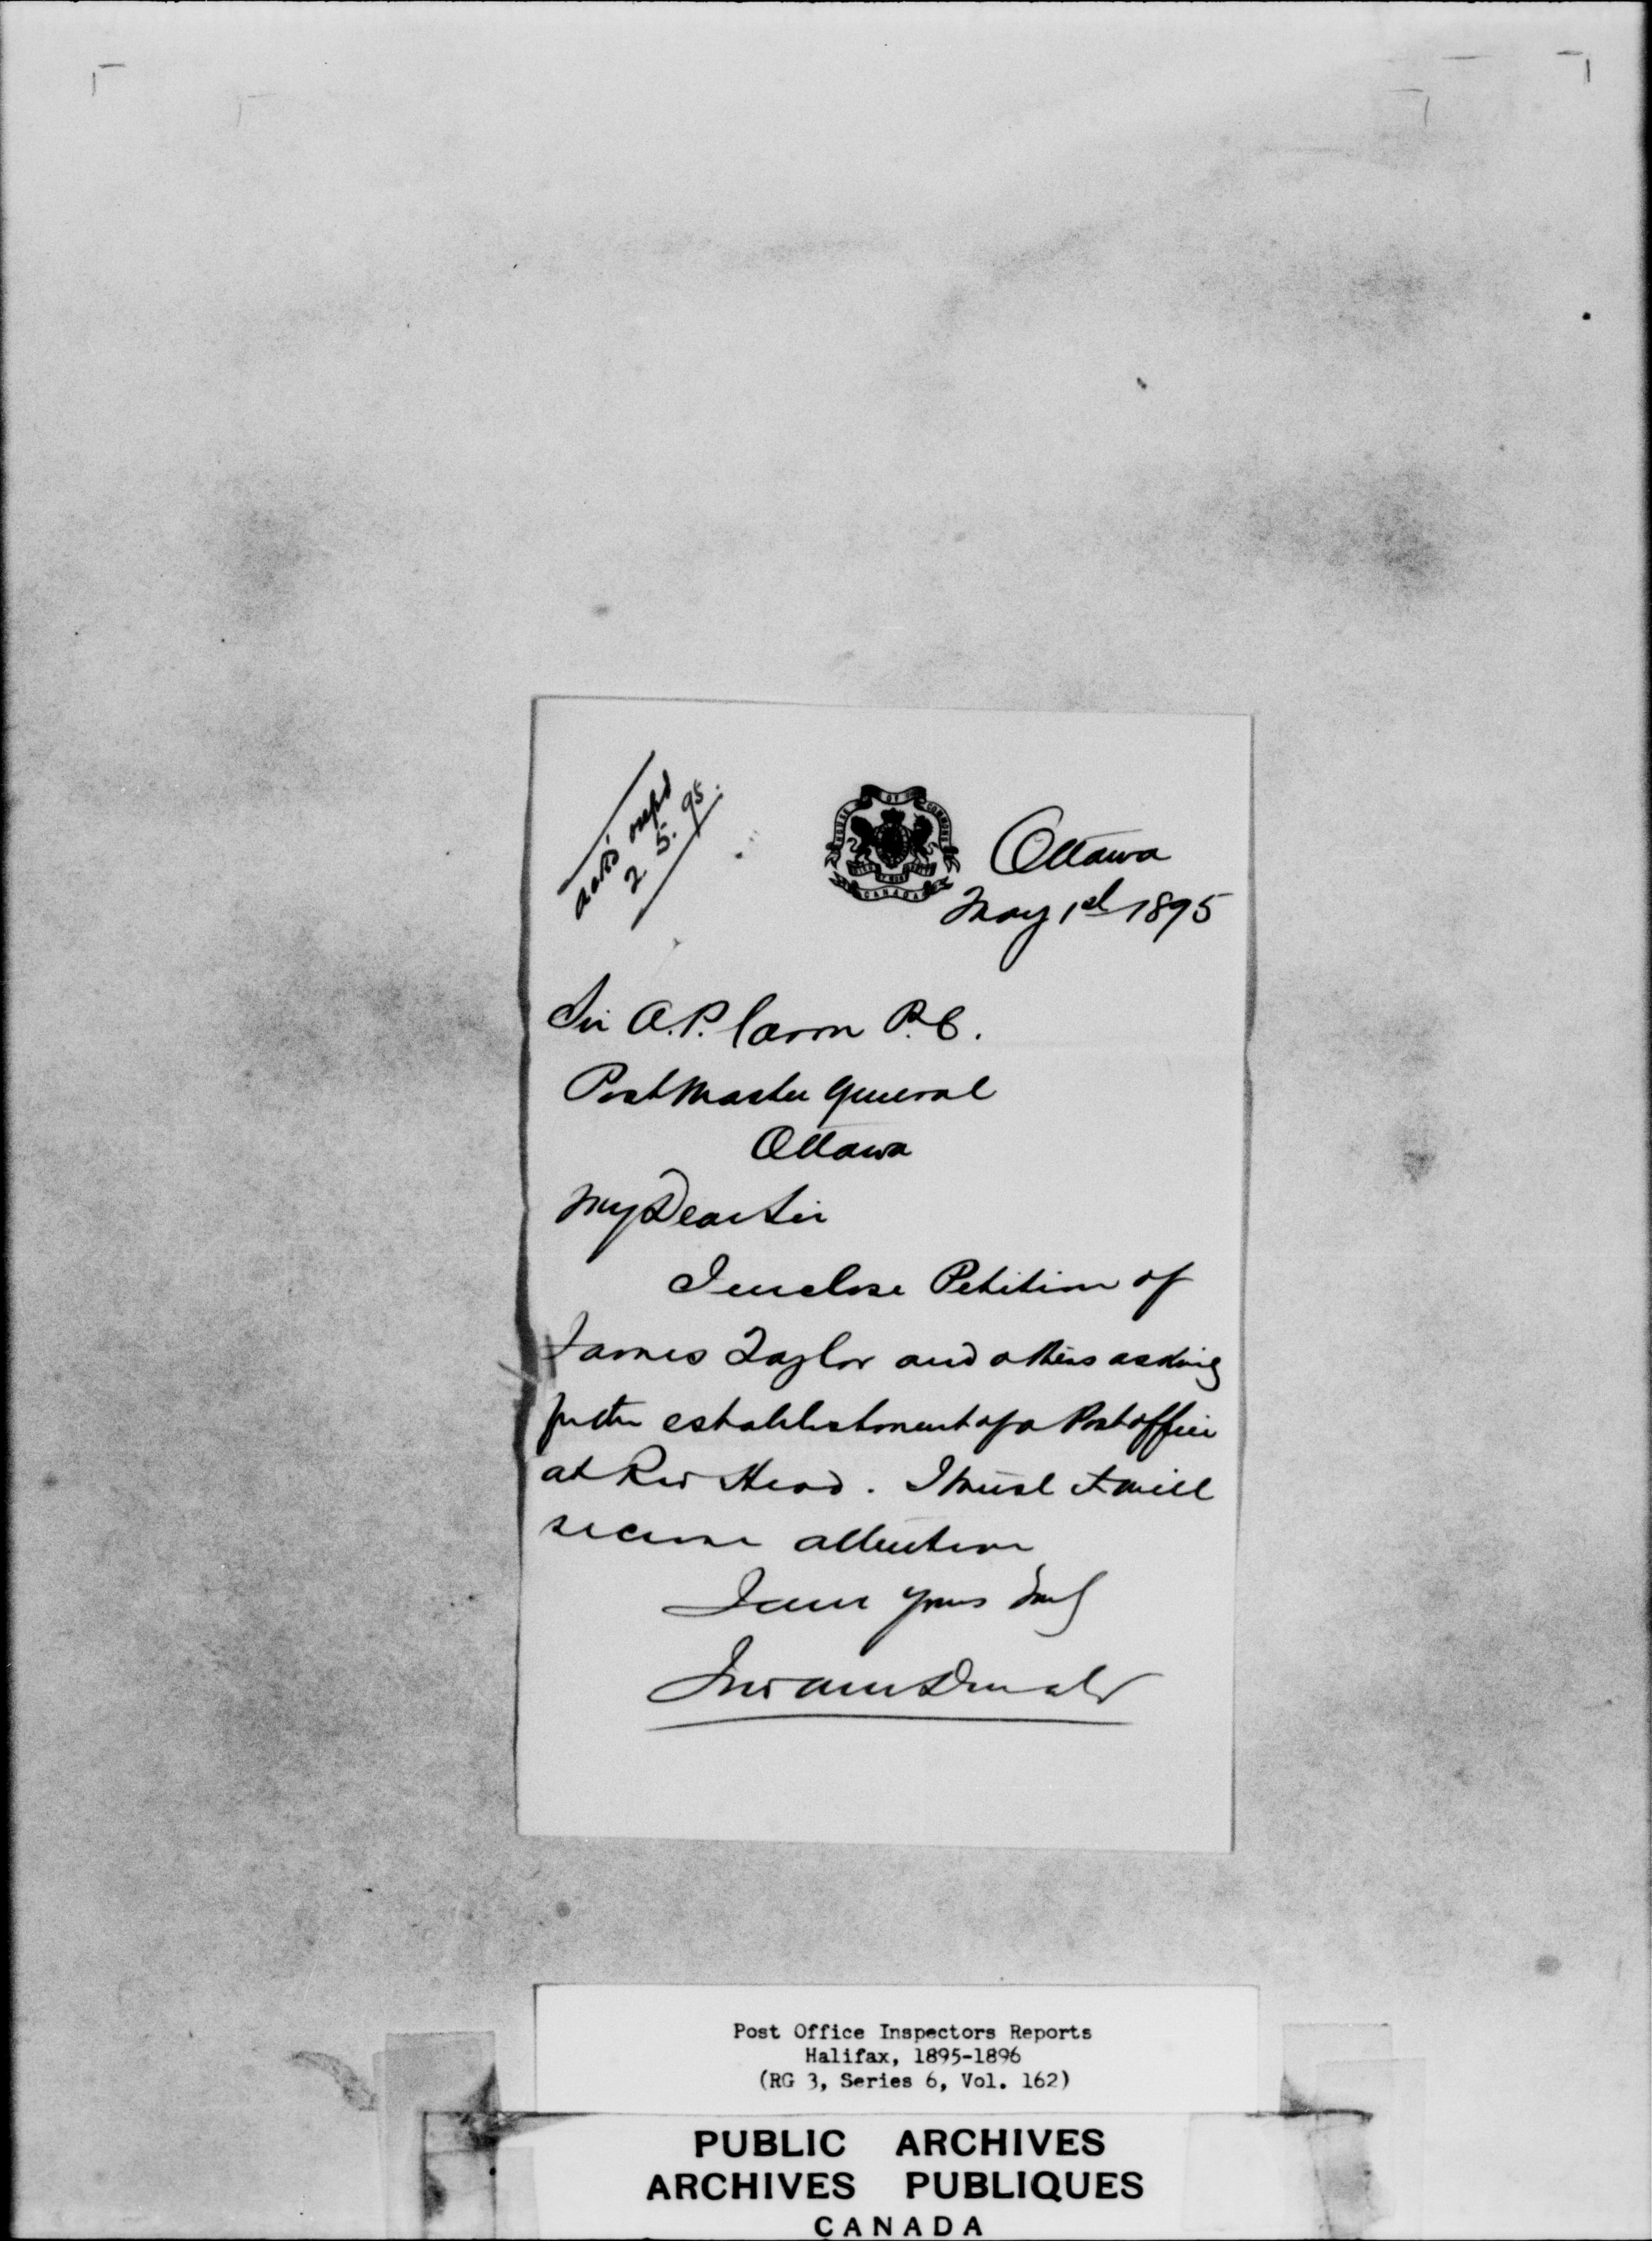 2. 5. 95.
HOUSE OF COMMONS
CANADA
Ottawa
May 1st 1895
Sir A.P. Caron P.C.
Post Master General
Ottawa
My Dear Sir
I enclose Petition of
James Taylor and others asking
for the establishment of a Post office
at Red Head. I trust it will
receive attention
I am yours truly
Post Office Inspectors Reports
Halifax, 1895-1896
(RG 3, Series 6, Vol. 162)
PUBLIC ARCHIVES
ARCHIVES PUBLIQUES
CANADA